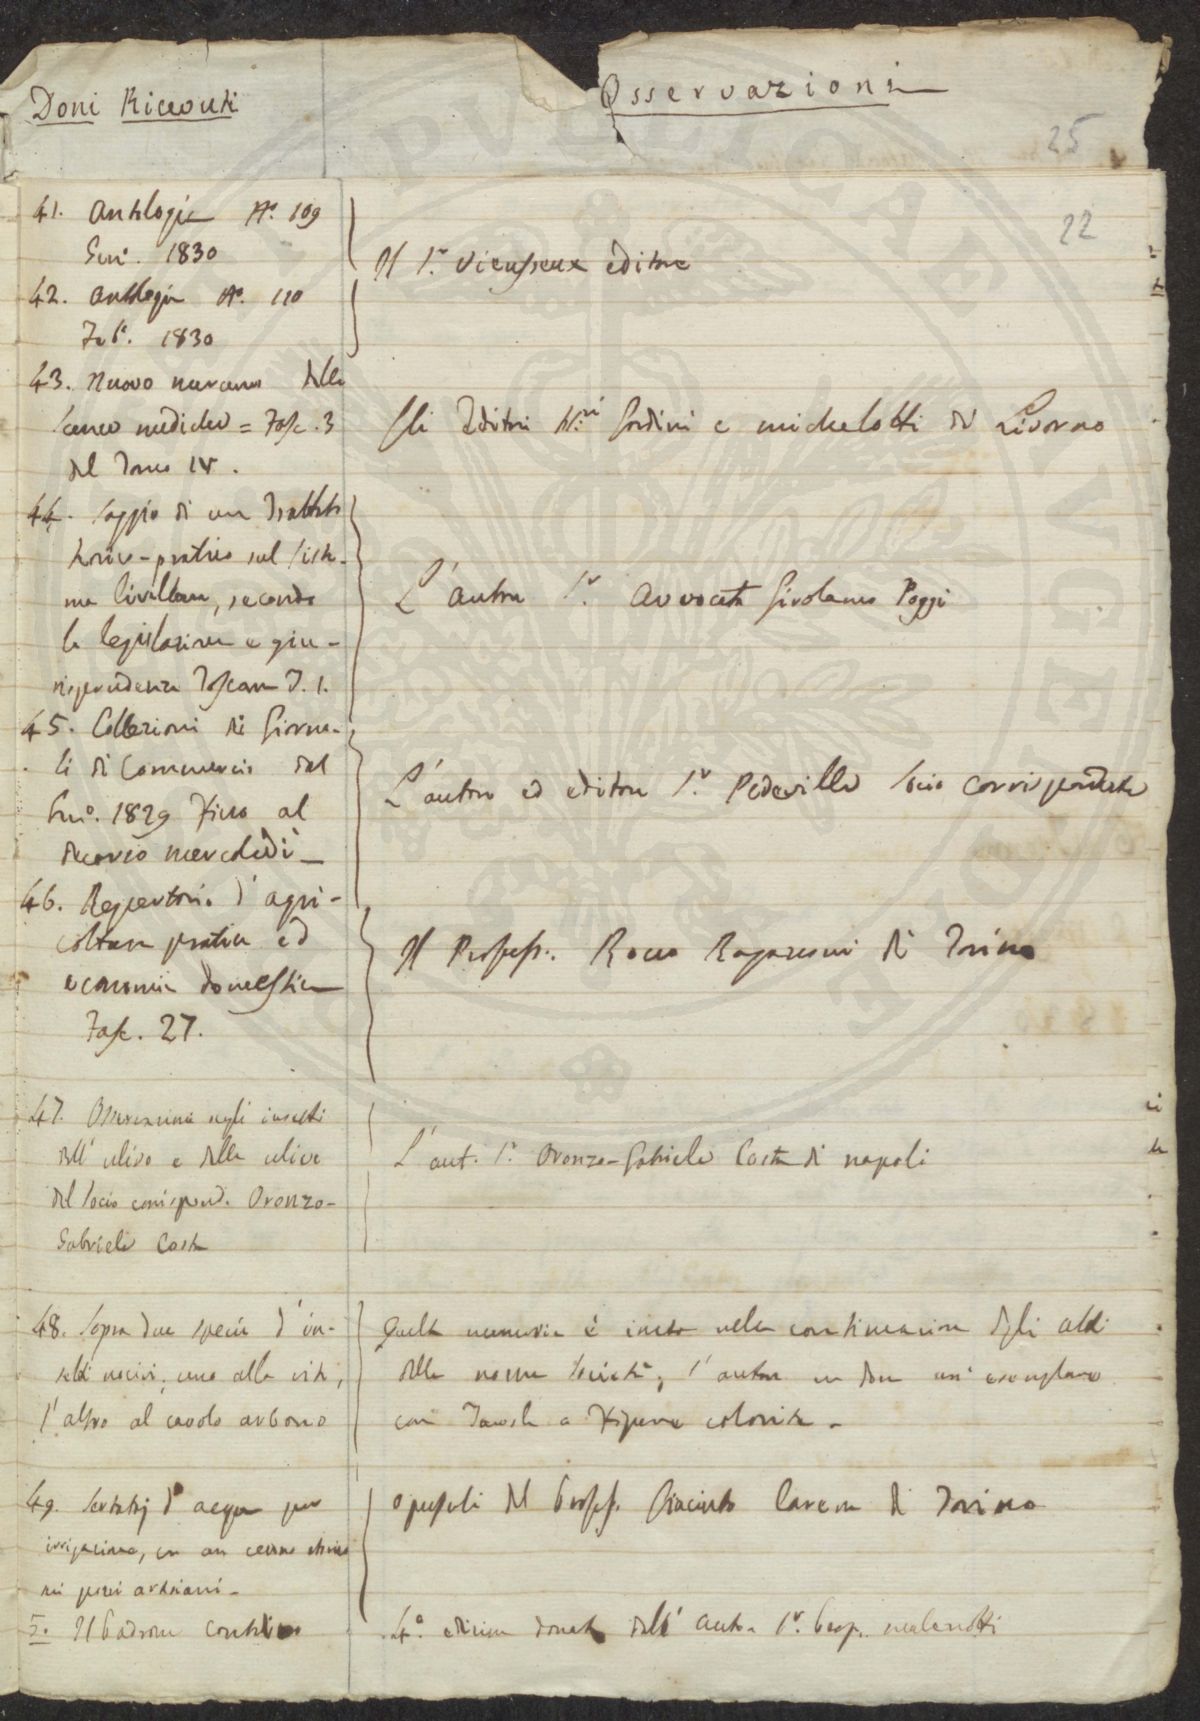 Doni Ricevuti
Osservazioni
25
22
41. Antologia N.° 109
Gen.° 1830
Il S.r Vieusseux editore
42. Antologia N.° 110
Feb.° 1830
43. Nuovo mercurio delle
Scienze mediche = Fasc. 3
del Tomo IV.
Gli Editori Sig.ri Sardini e Michelotti di Livorno
44. Saggio di un Trattato
teorico-pratico sul Siste-
ma livellare, secondo
la legislazione e giu-
risprudenza Toscana T. 1.
L'autore S.r Avvocato Girolamo Poggi
45. Collezioni di Giorna-
li di Commercio dal
Gen.° 1829 Fino al
decorso mercoledì
L'autore ed editore S.r Pedevilla Socio corrispondente
46. Repertorio d'agri-
coltura pratica ed
economia domestica
Fasc. 27.
Il Profess. Rocco Ragazzoni di Torino
47. Osservazioni sugli insetti
dell'ulivo e delle ulive
del Socio corrispond. Oronzo-
Gabriele Costa
L'aut. S.r Oronzo-Gabriele Costa di napoli
48. Sopra due specie d'in-
setti nocivi, uno alla vite,
l'altro al cavolo arboreo
Questa memoria è inserta nella continuazione degli atti
della nostra Società, l'autore ne dona un' esemplare
con Tavole a Figure colorite.
49. Serbatoj d'acqua per
irrigazione, con un cenno
sui pozzi artesiani.
opuscoli del Profess. Giacinto Carena di Torino
50. Il Padrone Contadino
4.° edizione donata dall' autore S.r Prop. malenotti